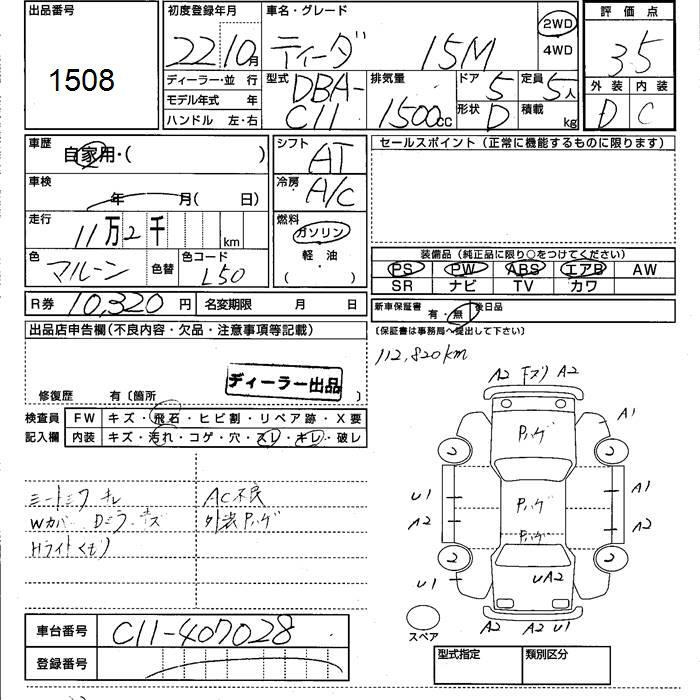 出品番号
1508
初度登録年月
22 10月
車名・グレード
ティーダ 15M
2WD
4WD
評価点
3.5
外装 内装
D C
ディーラー・並 行
モデル年式 年
ハンドル 左・右
型式
DBA-
C11
排気量
1500cc
ドア 5
形状 D
定員 5人
積載 kg
車歴
自家用・( )
車検
年 月( 日)
走行
11万2千 km
色
マルーン
色替
色コード
L50
シフト
AT
冷房
A/C
燃料
ガソリン
軽・油
( )
セールスポイント (正常に機能するものに限ります)
装備品 (純正品に限り○をつけてください)
PS PW ABS エアB AW
SR ナビ TV カワ
R券 10,320 円 名変期限 月 日
新車保証書 有・無 後日品
(保証書は事務局へ提出して下さい)
出品店申告欄(不良内容・欠品・注意事項等記載)
112,820km
ディーラー出品
修復歴 有〔箇所 〕
検査員
記入欄
FW キズ・飛石・ヒビ割・リペア跡・X要
内装 キズ・汚れ・コゲ・穴・スレ・キレ・破レ
シートミワ キレ
AC不良
Wカバー Dミラーキズ
外装Pハゲ
Hライトくもり
A2 Fブリ A2
A1
Pハゲ
2 2
U1 A1
Pハゲ
A2 A2
Pハゲ
2 2
U1 UA2 A2
スペア
A2 A2 U1
車台番号 C11-407028
登録番号
型式指定 類別区分